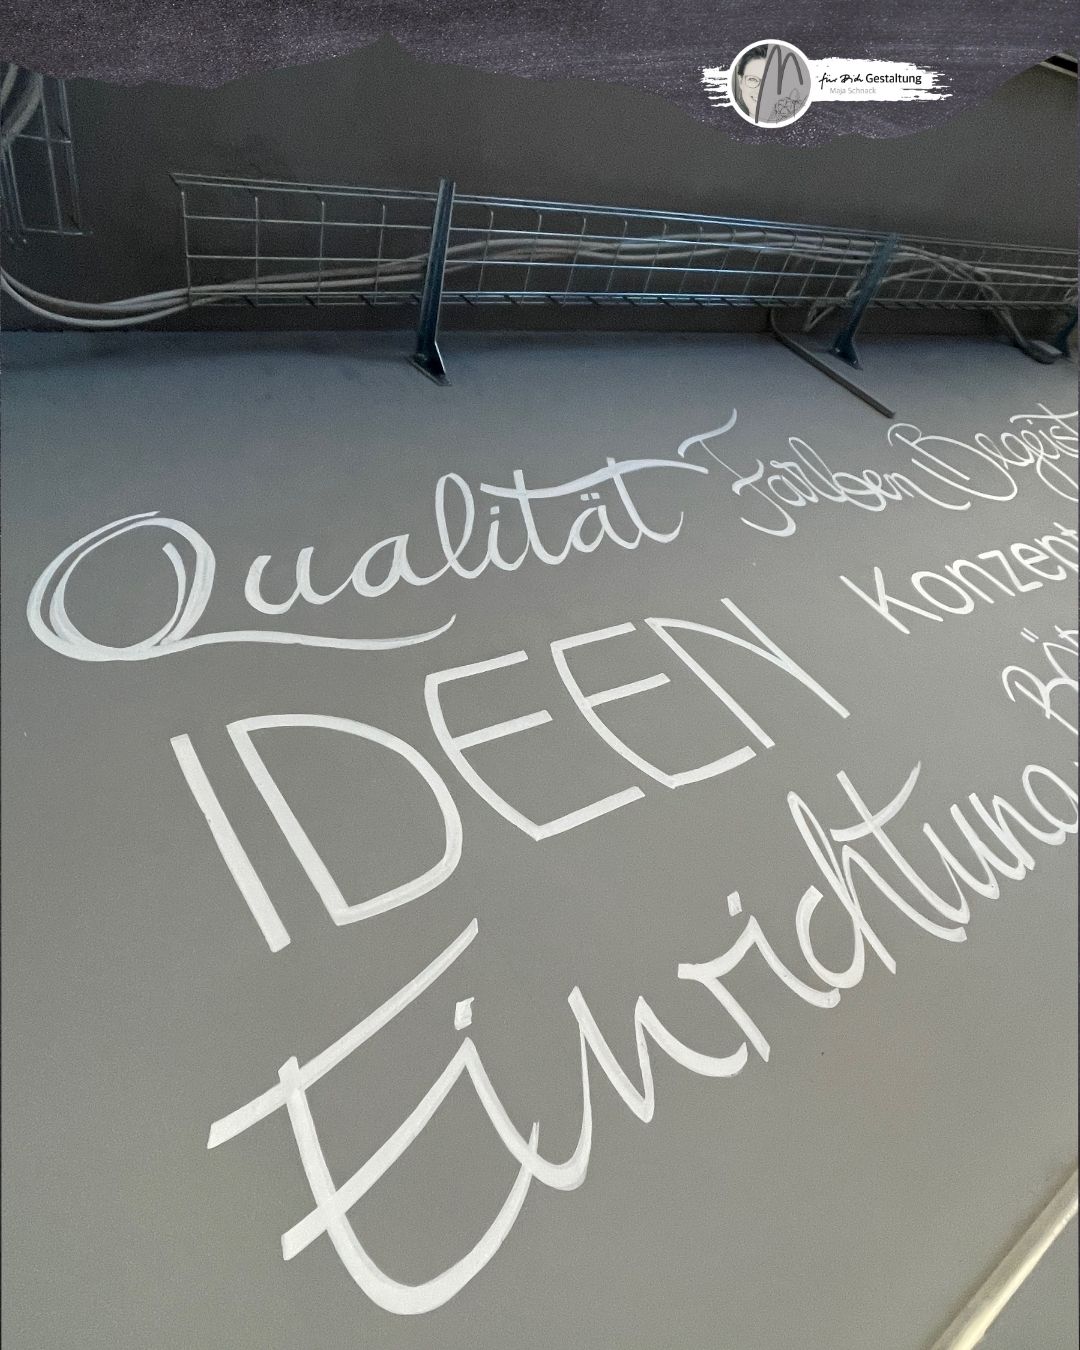 für Dich Gestaltung
Maja Schnack
Qualität Farben Begeist
IDEEN Konzent
Einrichtung